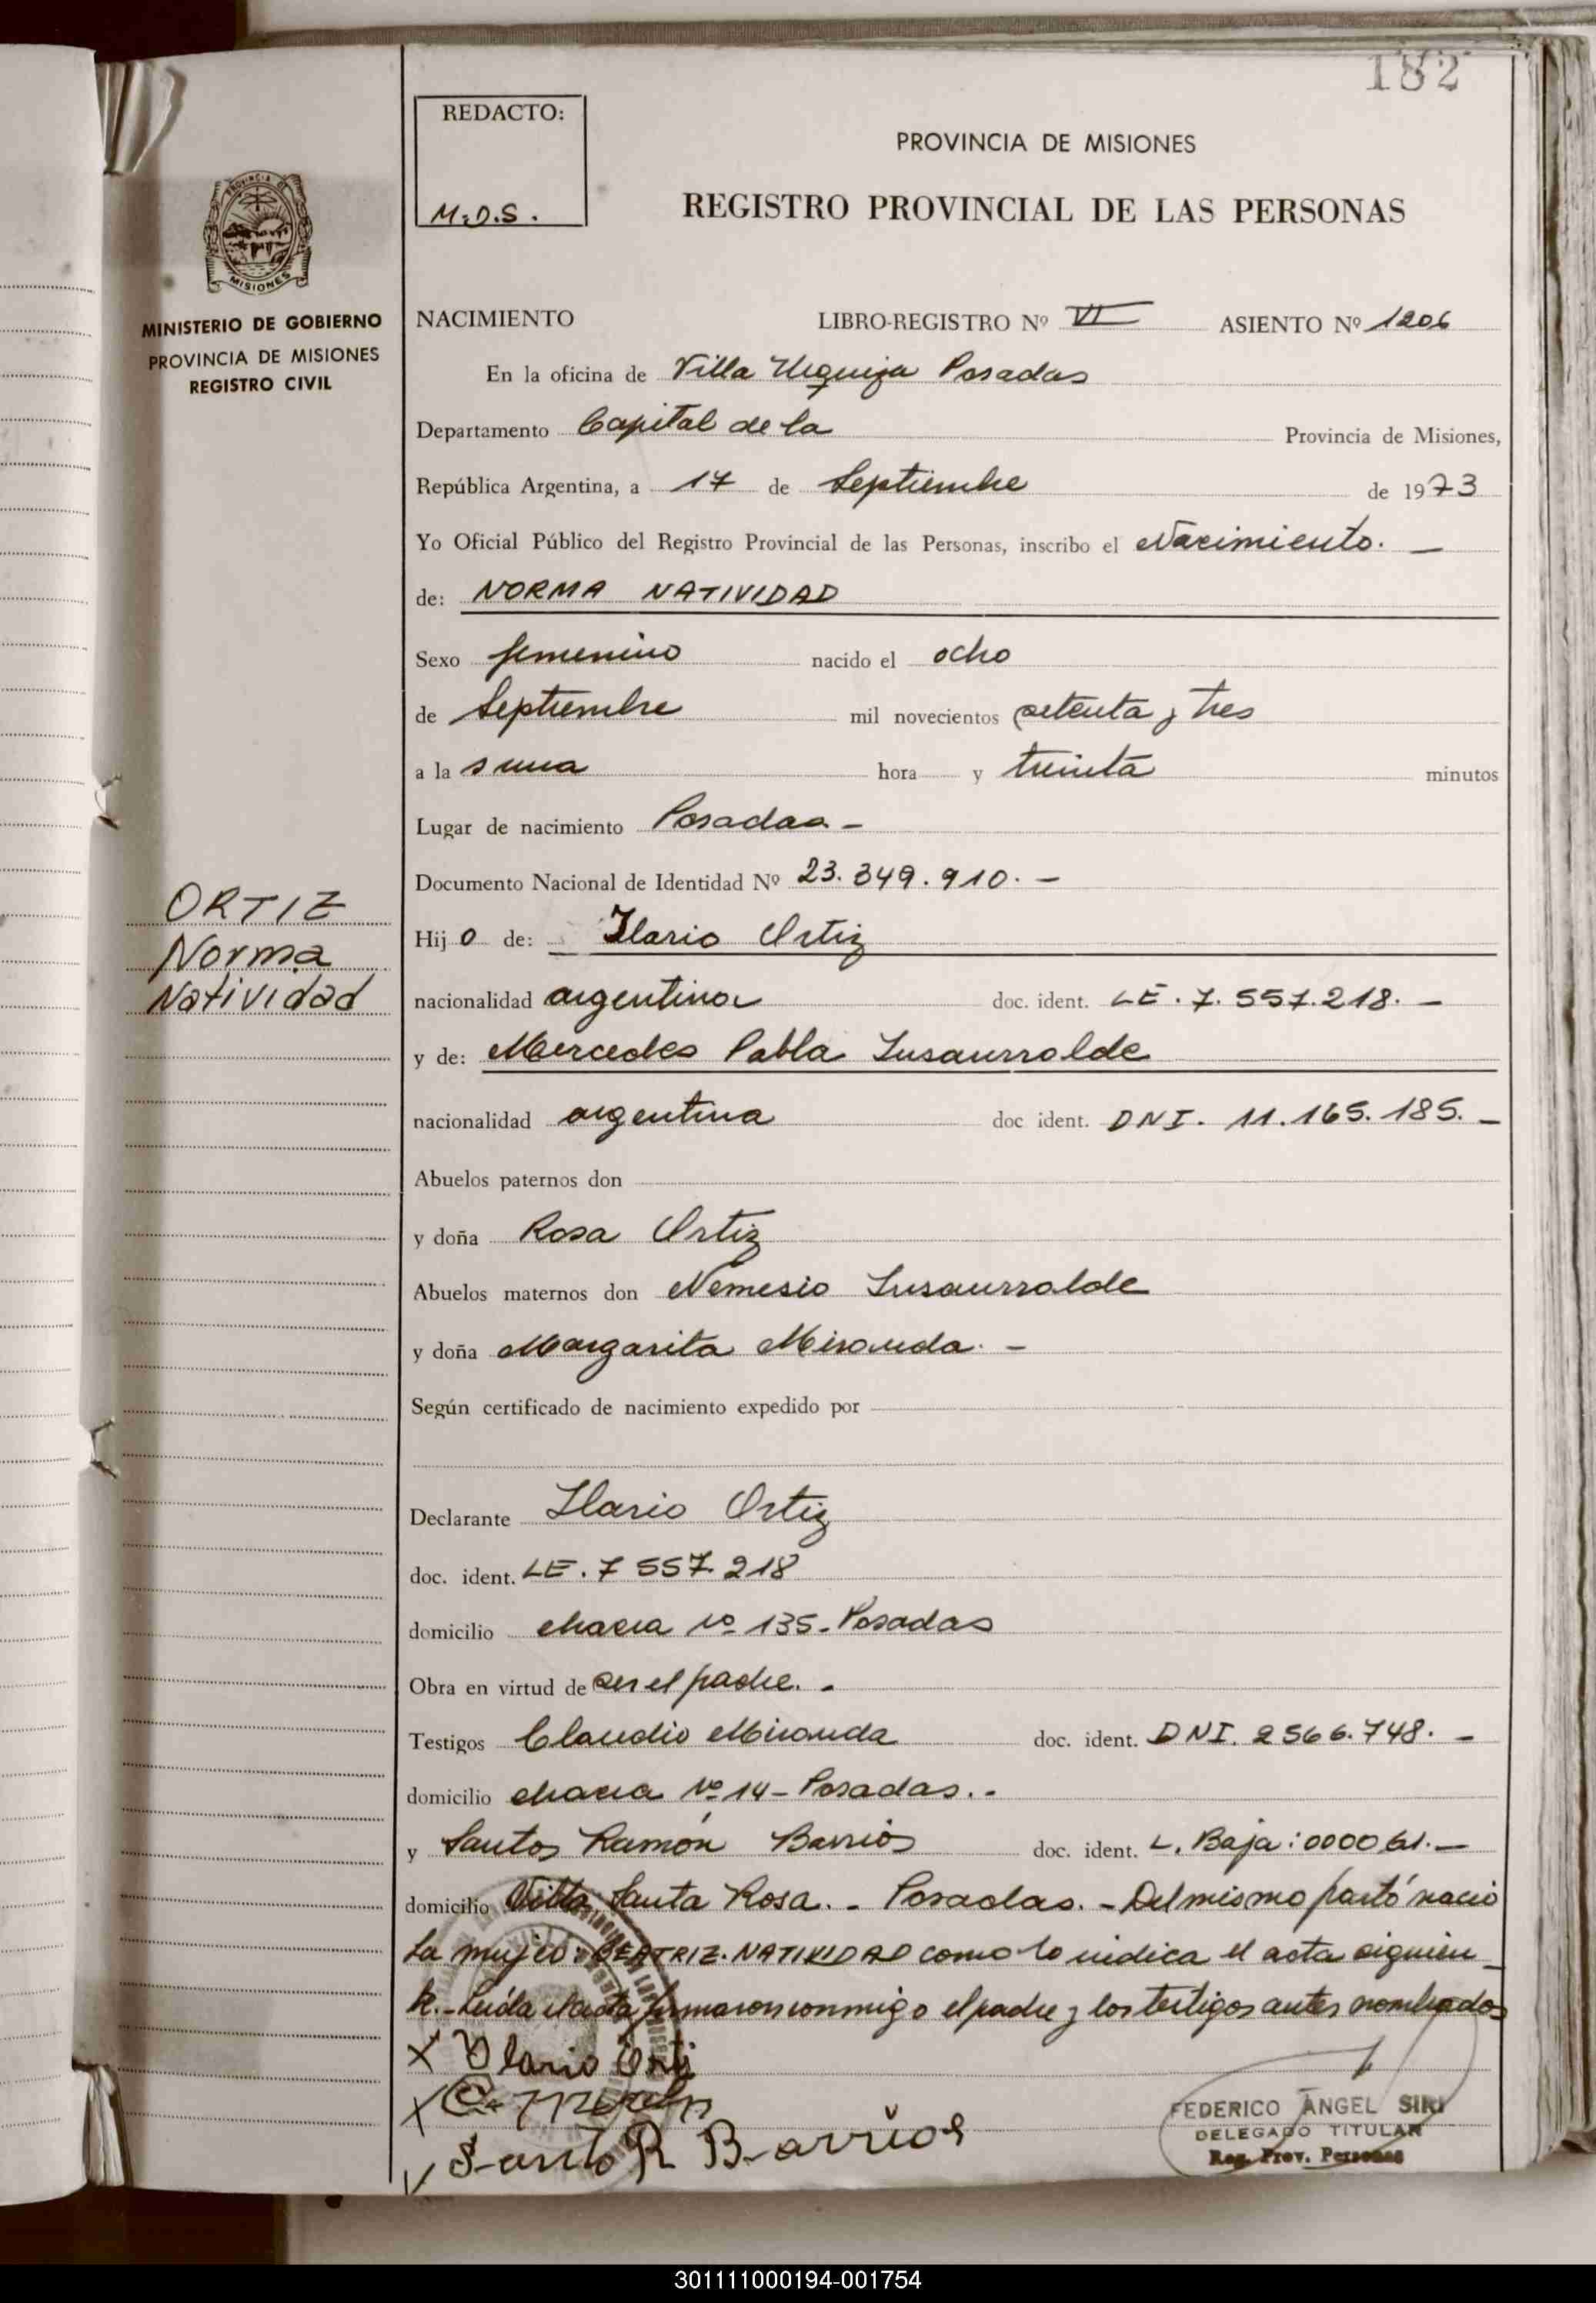 182
REDACTO:
M.D.S.
PROVINCIA DE MISIONES
REGISTRO PROVINCIAL DE LAS PERSONAS
PROVINCIA DE
MISIONES
MINISTERIO DE GOBIERNO
PROVINCIA DE MISIONES
REGISTRO CIVIL
NACIMIENTO LIBRO-REGISTRO Nº VI ASIENTO Nº 1206
En la oficina de Villa Urquiza Posadas
Departamento Capital de la Provincia de Misiones,
República Argentina, a 17 de Septiembre de 1973
Yo Oficial Público del Registro Provincial de las Personas, inscribo el Nacimiento. —
de: NORMA NATIVIDAD
Sexo femenino nacido el ocho
de Septiembre mil novecientos setenta y tres
a la s una hora y treinta minutos
Lugar de nacimiento Posadas -
Documento Nacional de Identidad Nº 23.349.910. —
ORTIZ
Norma
Natividad
Hij o de: Ilario Ortiz
nacionalidad argentina doc. ident. LE. 7.557.218. —
y de: Mercedes Pabla Lusaurralde
nacionalidad argentina doc ident. DNI. 11.165.185. —
Abuelos paternos don
y doña Rosa Ortiz
Abuelos maternos don Nemesio Lusaurralde
y doña Margarita Miranda. —
Según certificado de nacimiento expedido por
Declarante Ilario Ortiz
doc. ident. LE. 7 557.218
domicilio chacra Nº 135 - Posadas
Obra en virtud de ser el padre. -
Testigos Claudio Miranda doc. ident. DNI. 2566.748. —
domicilio chacra Nº 14 - Posadas. -
y Santos Ramón Barrios doc. ident. L. Baja: 000061. —
domicilio Villa Santa Rosa. - Posadas. - Del mismo partó nació
la mujer: BEATRIZ NATIVIDAD como lo indica el acta siguien_
te. - Leída el acta firmaron conmigo el padre y los testigos antes nombrados
X Ilario Orti
X C.
Santo R Barrios
FEDERICO ANGEL SIRI
DELEGADO TITULAR
Reg. Prov. Personas
301111000194-001754